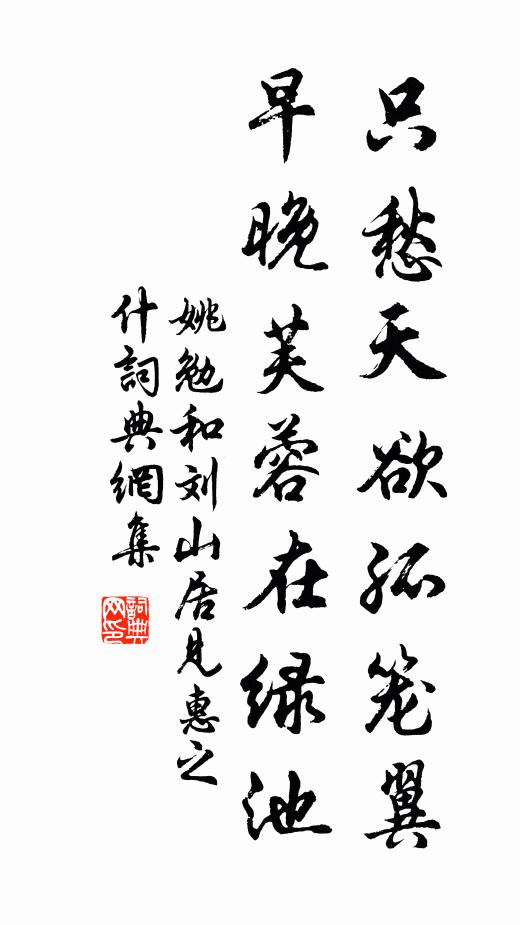 只愁天欲孤笼翼
早晚芙蓉在绿池
姚勉和刘山居见惠之
什詞典網集
詞典网印